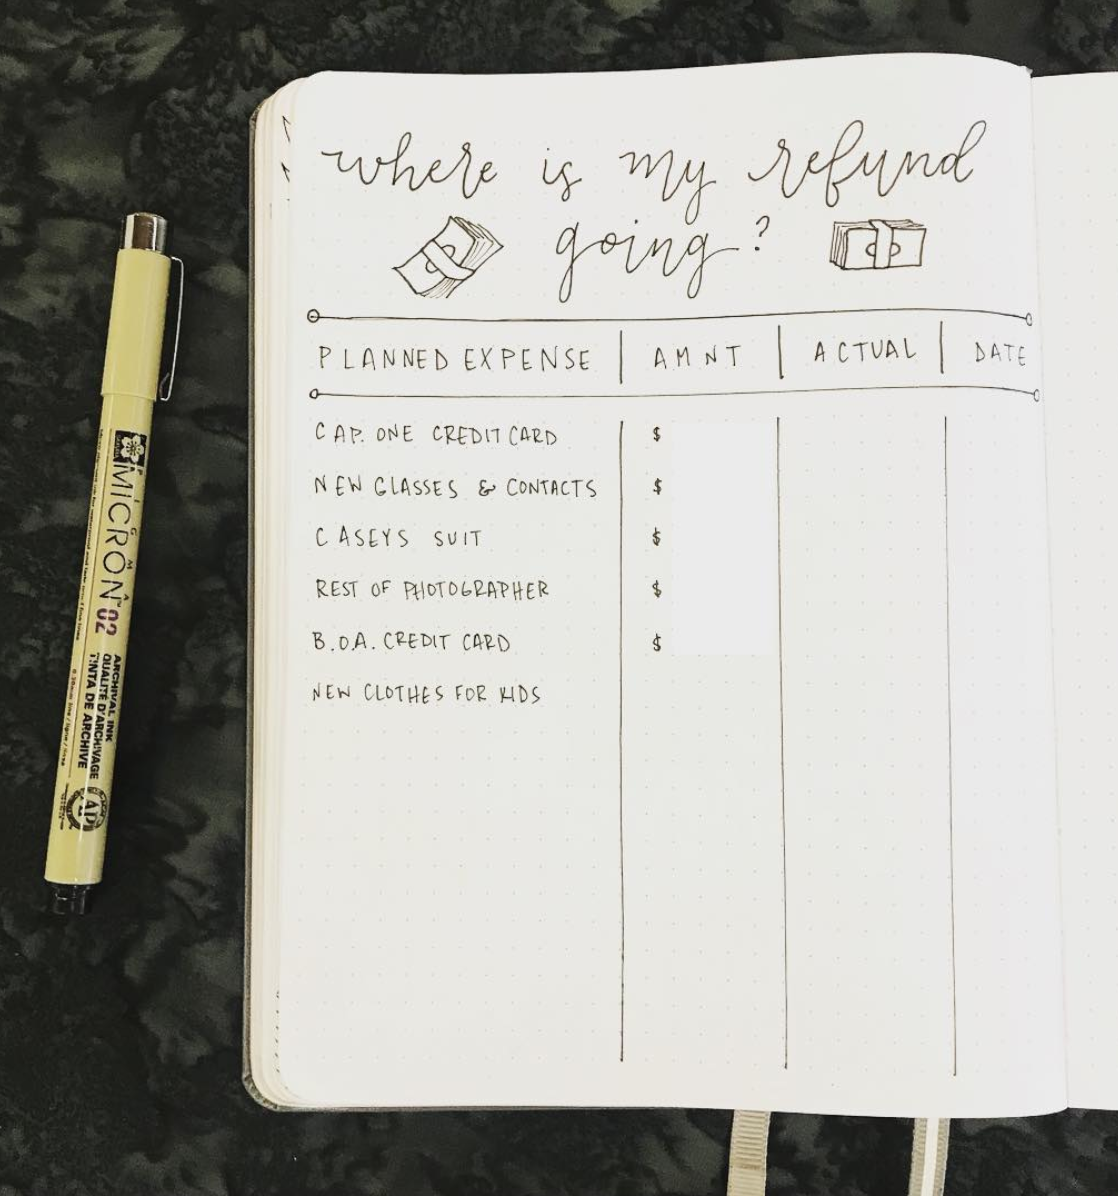 where is my refund
going?
PLANNED EXPENSE AMNT ACTUAL DATE
CAP. ONE CREDIT CARD $
NEW GLASSES & CONTACTS $
CASEYS SUIT $
REST OF PHOTOGRAPHER $
B.O.A. CREDIT CARD $
NEW CLOTHES FOR KIDS
PIGMA
MICRON™ 02
ARCHIVAL INK
QUALITÉ D'ARCHIVAGE
TINTA DE ARCHIVE
AP